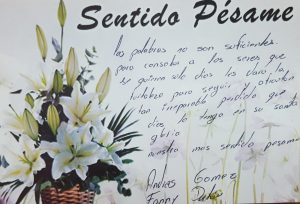 Sentido Pésame
las palabras no son suficientes
para consolar a los seres que
se quieren solo dios les dara la
fortaleza para seguir y afrontar
tan irreparable perdida que
dios lo tenga en su santa
gloria
nuestro mas sentido pesame
Andres Gomez
Fanny